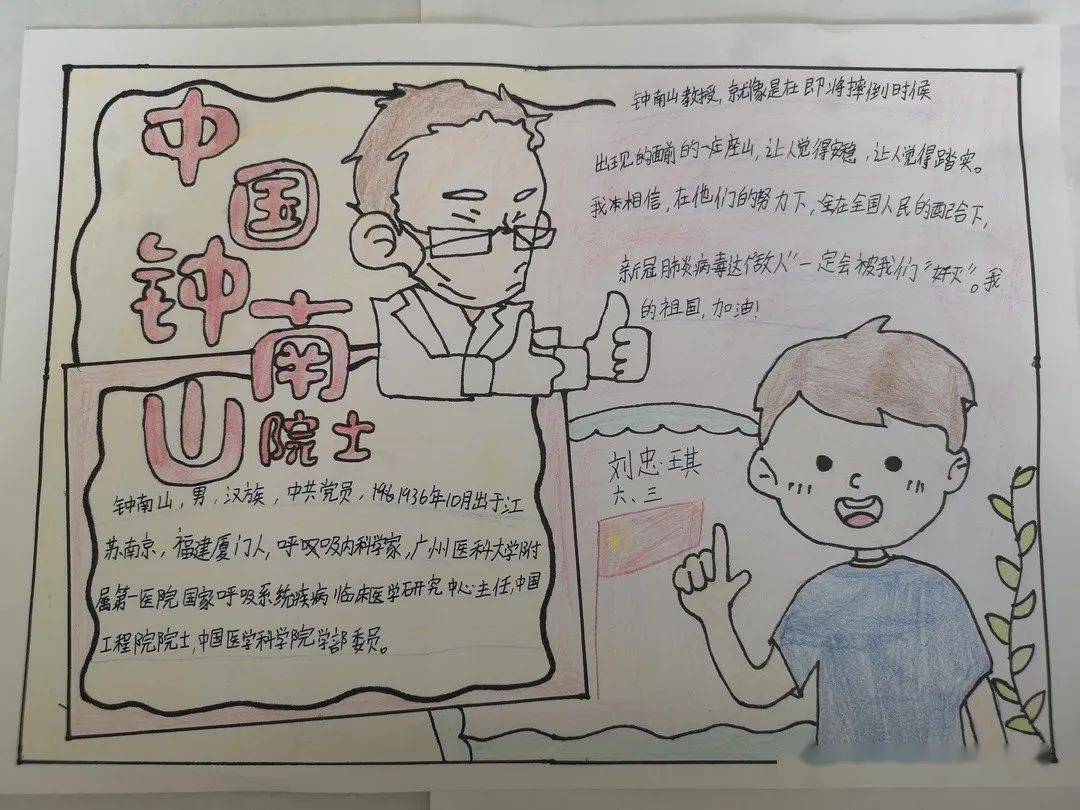 中国
钟南
山院士
钟南山教授,就像是在即将摔倒时候
出现的面前的一座座山,让人觉得安稳,让人觉得踏实。
我本相信,在他们的努力下,全在全国人民的配合下,
新冠肺炎病毒这"敌人"一定会被我们"奸灭"。我
的祖国,加油!
钟南山,男,汉族,中共党员,1961936年10月出于江
苏南京,福建厦门人,呼吸吸内科学家,广州医科大学附
属第一医院国家呼吸系统疾病临床医学研究中心主任,中国
工程院院士,中国医学科学院学部委员。
刘忠琪
六、三